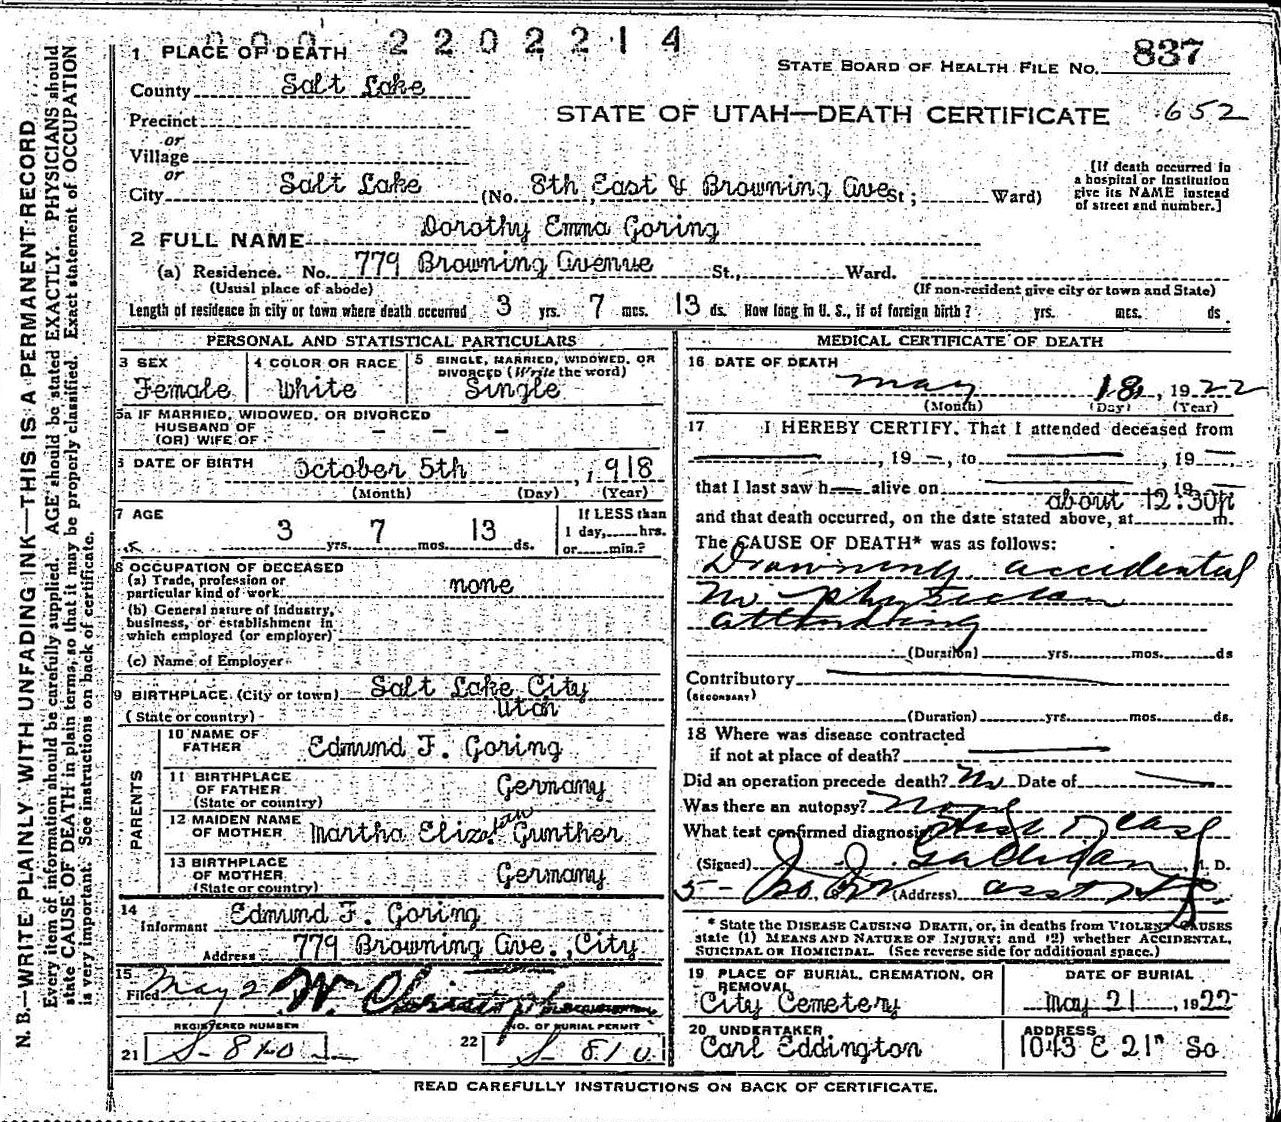 000 2202214
1 PLACE OF DEATH
STATE BOARD OF HEALTH FILE NO. 837
County Salt Lake
STATE OF UTAH—DEATH CERTIFICATE 652
Precinct
or
Village
or
City Salt Lake (No. 8th East & Browning Ave St; Ward)
[If death occurred in
a hospital or institution
give its NAME instead
of street and number.]
2 FULL NAME Dorothy Emma Goring
(a) Residence. No. 779 Browning Avenue St., Ward.
(Usual place of abode) (If non-resident give city or town and State)
Length of residence in city or town where death occurred 3 yrs. 7 mos. 13 ds. How long in U. S., if of foreign birth? yrs. mos. ds
PERSONAL AND STATISTICAL PARTICULARS
3 SEX Female
4 COLOR OR RACE White
5 SINGLE, MARRIED, WIDOWED, OR
DIVORCED (Write the word)
Single
5a IF MARRIED, WIDOWED, OR DIVORCED
HUSBAND OF
(OR) WIFE OF – – –
6 DATE OF BIRTH October 5th, 1918
(Month) (Day) (Year)
7 AGE 3 yrs. 7 mos. 13 ds.
If LESS than
1 day, hrs.
or min.?
8 OCCUPATION OF DECEASED
(a) Trade, profession or
particular kind of work none
(b) General nature of industry,
business, or establishment in
which employed (or employer)
(c) Name of Employer
9 BIRTHPLACE (City or town) Salt Lake City
(State or country) Utah
PARENTS
10 NAME OF
FATHER Edmund F. Goring
11 BIRTHPLACE
OF FATHER Germany
(State or country)
12 MAIDEN NAME
OF MOTHER Martha Eliza Gunther
13 BIRTHPLACE
OF MOTHER Germany
(State or country)
14
Informant Edmund F. Goring
Address 779 Browning Ave., City
15
Filed May 2
REGISTERED NUMBER
21 S-810
NO. OF BURIAL PERMIT
22 S-810
MEDICAL CERTIFICATE OF DEATH
16 DATE OF DEATH
May 18, 1922
(Month) (Day) (Year)
17 I HEREBY CERTIFY, That I attended deceased from
—, 19 —, to —, 19 —
that I last saw h— alive on — 19 —
about 12:30p
and that death occurred, on the date stated above, at m.
The CAUSE OF DEATH* was as follows:
Drowning, accidental
No physician
attending
(Duration) yrs. mos. ds
Contributory
(SECONDARY)
(Duration) yrs. mos. ds.
18 Where was disease contracted
if not at place of death?
Did an operation precede death? No Date of
Was there an autopsy? None
What test confirmed diagnosis of case
(Signed) M. D.
(Address)
* State the DISEASE CAUSING DEATH, or, in deaths from VIOLENT CAUSES
state (1) MEANS AND NATURE OF INJURY; and (2) whether ACCIDENTAL,
SUICIDAL OR HOMICIDAL. (See reverse side for additional space.)
19 PLACE OF BURIAL, CREMATION, OR
REMOVAL
City Cemetery
DATE OF BURIAL
May 21, 1922
20 UNDERTAKER
Carl Eddington
ADDRESS
1043 E 21st So
READ CAREFULLY INSTRUCTIONS ON BACK OF CERTIFICATE.
N. B.—WRITE PLAINLY WITH UNFADING INK—THIS IS A PERMANENT RECORD
Every item of information should be carefully supplied. AGE should be stated EXACTLY. PHYSICIANS should
state CAUSE OF DEATH in plain terms, so that it may be properly classified. Exact statement of OCCUPATION
is very important. See instructions on back of certificate.